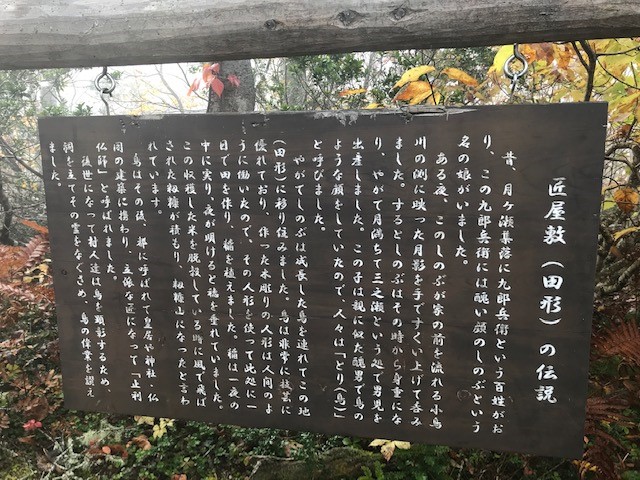 匠屋敷(田形)の伝説
昔、月ケ瀬集落に九郎兵衛という百姓がお
り、この九郎兵衛には醜い顔のしのぶという
名の娘がいました。
ある夜、このしのぶが家の前を流れる小鳥
川の渕に映った月影を手ですくい上げて呑み
ました。するとしのぶはその時から身重にな
り、やがて月満ちて三之瀬という処で男児を
出産しました。この子は親に似た醜男で鳥の
ような顔をしていたので、人々は「とり(鳥)」
と呼びました。
やがてしのぶは成長した鳥を連れてこの地
(田形)に移り住みました。鳥は非常に技芸に
優れており、作った木彫りの人形は人間のよ
うに働いたので、その人形を使って此処に一
日で田を作り、稲を植えました。稲は一夜の
中に実り、夜が明けると穂を垂れていました。
この収穫した米を脱穀している時に風で飛ば
された籾糠が積もり、籾糠山になったと言わ
れています。
鳥はその後、都に呼ばれて皇居や神社・仏
閣の建築に携わり、立派な匠になって「止利
仏師」と呼ばれました。
後世になって村人達は鳥を顕彰するため
祠を立てその霊をなぐさめ、鳥の偉業を讃え
ました。